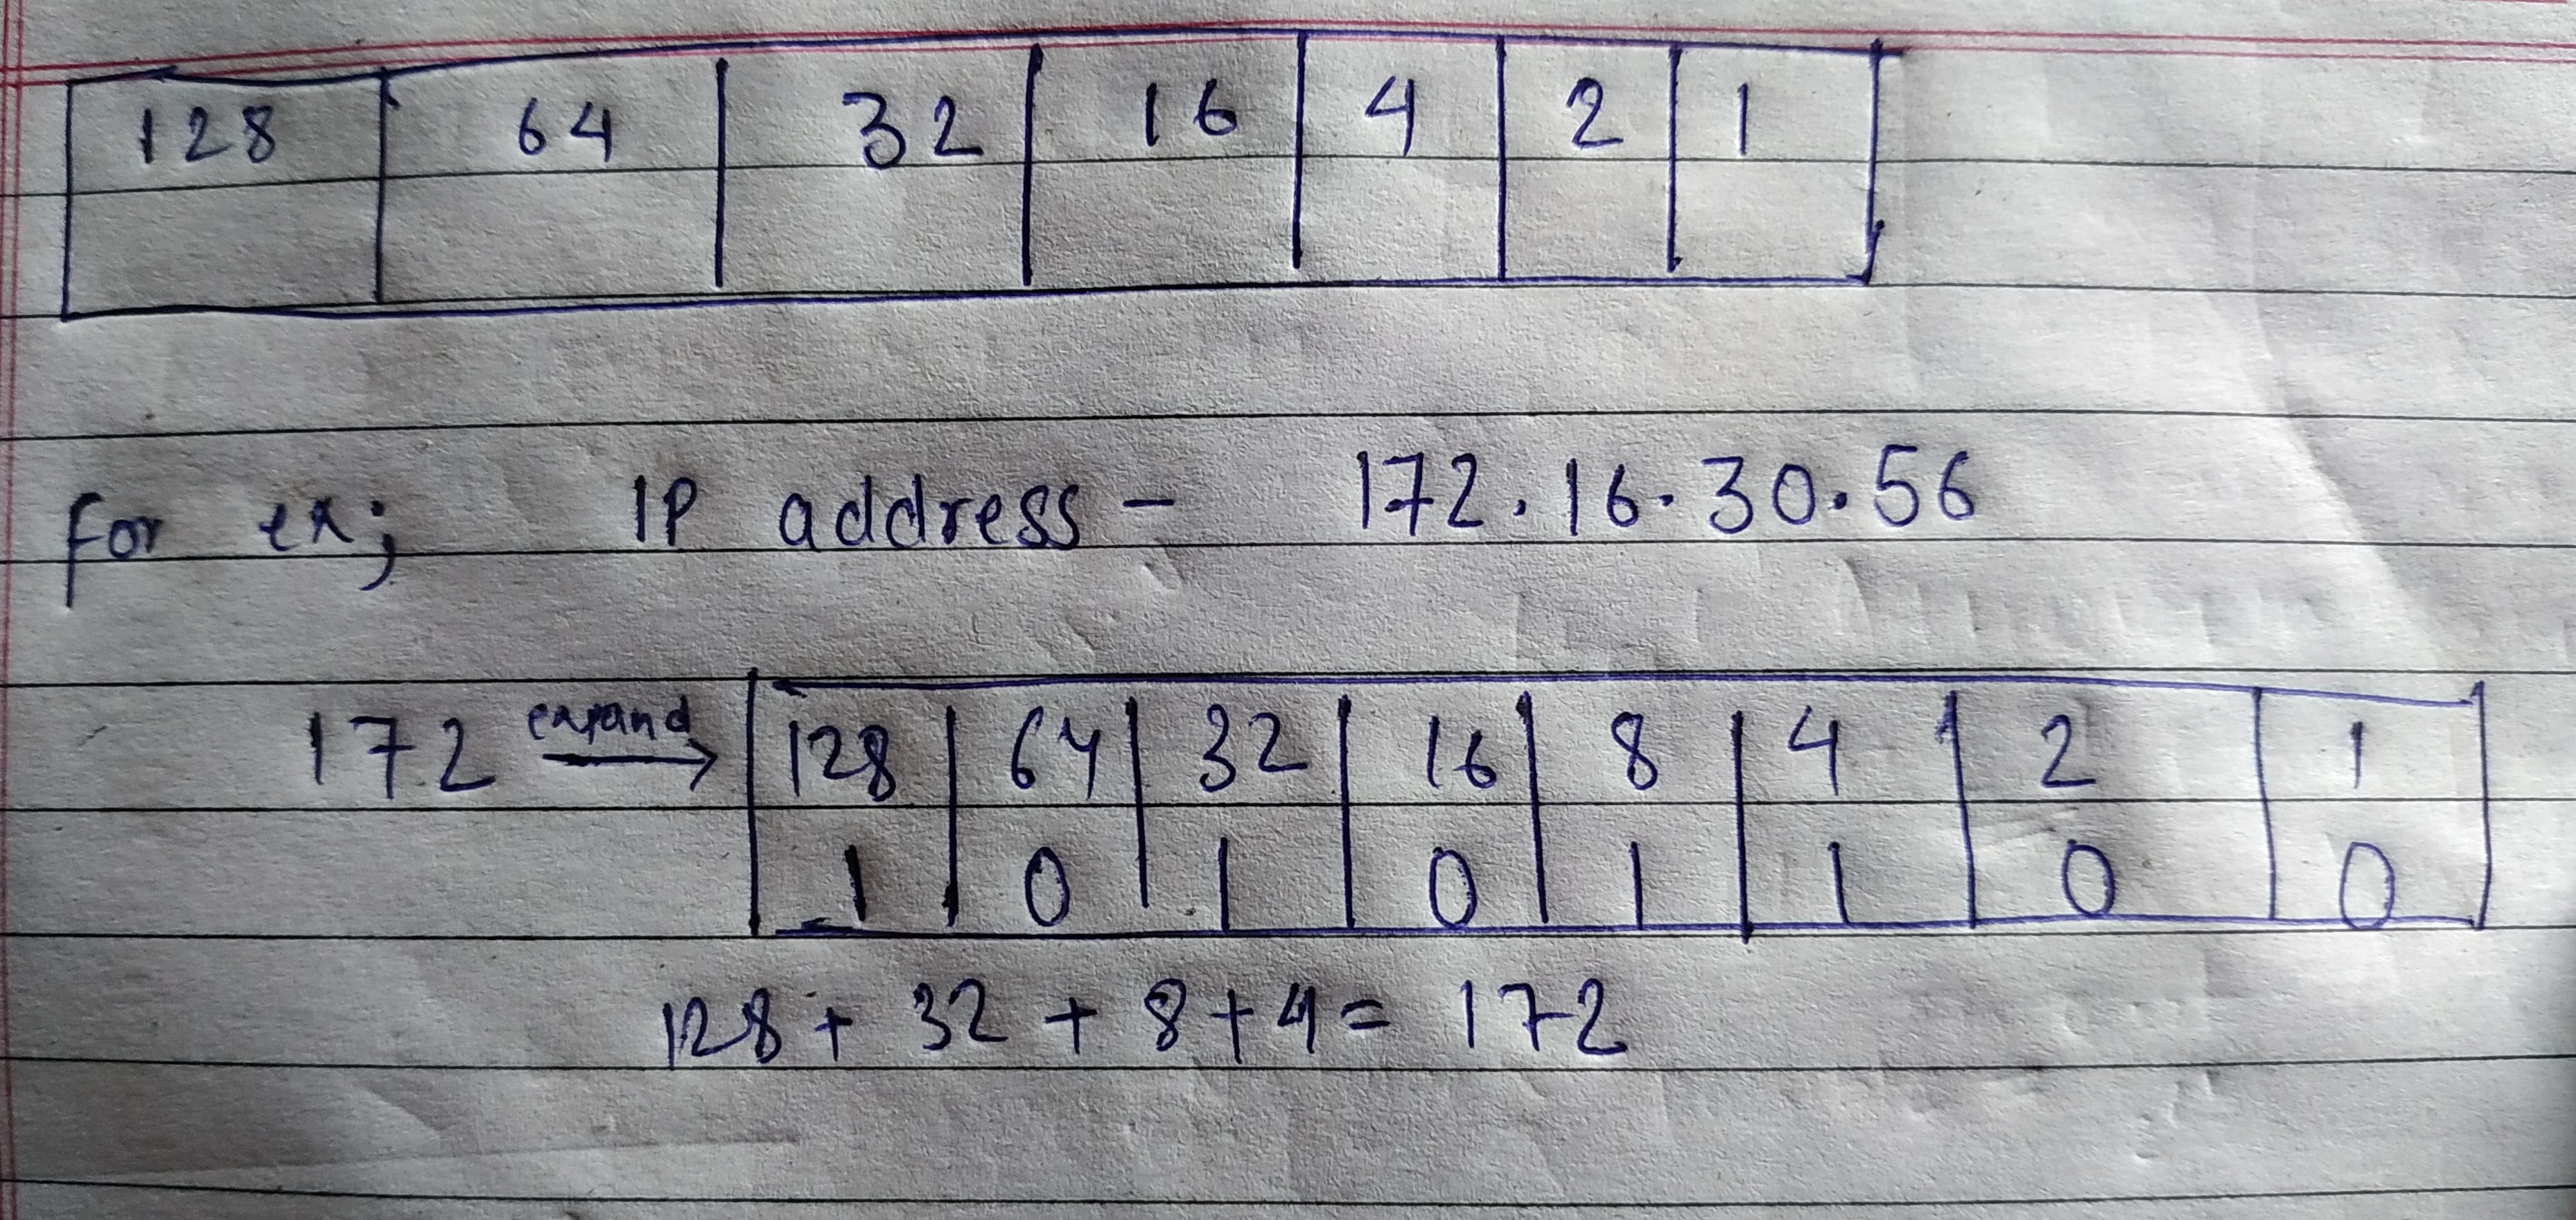 128 64 32 16 4 2 1
for ex; IP address - 172.16.30.56
172 expand → 128 64 32 16 8 4 2 1
1 0 1 0 1 1 0 0
128 + 32 + 8 + 4 = 172